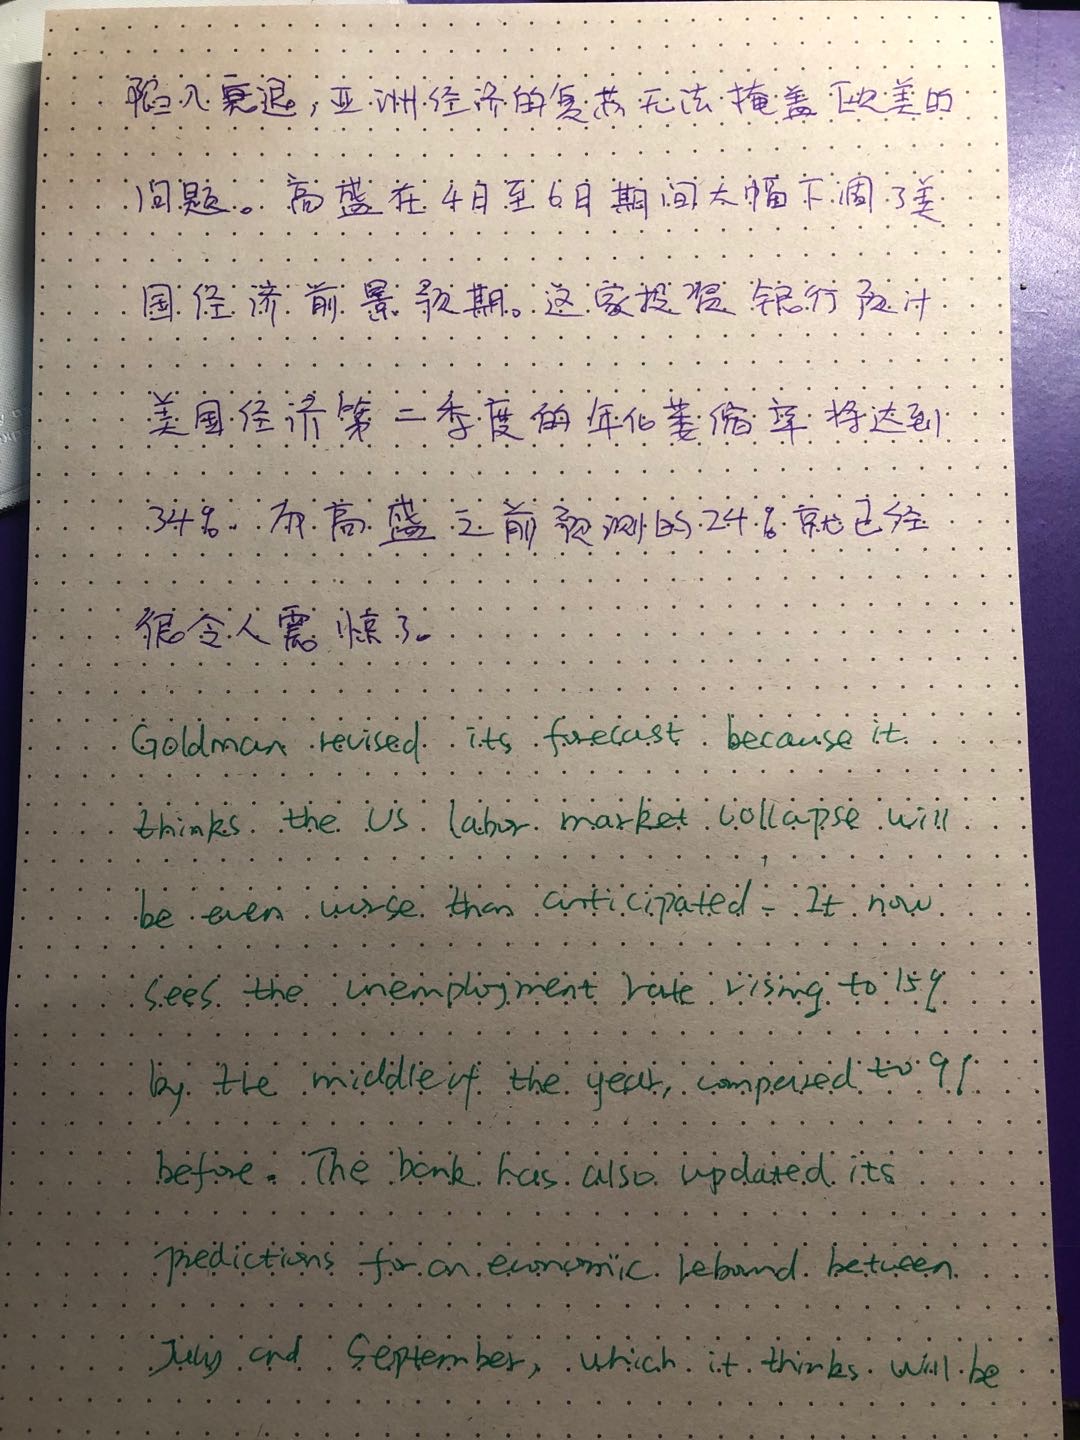 陷入衰退，亚洲经济的复苏无法掩盖欧美的
问题。高盛在4月至6月期间大幅下调了美
国经济前景预期。这家投资银行预计
美国经济第二季度的年化萎缩率将达到
34%。而高盛之前预测的24%就已经
很令人震惊了。
Goldman revised its forecast because it
thinks the US labor market collapse will
be even worse than anticipated. It now
sees the unemployment rate rising to 15%
by the middle of the year, compared to 9%
before. The bank has also updated its
predictions for an economic rebound between
July and September, which it thinks will be